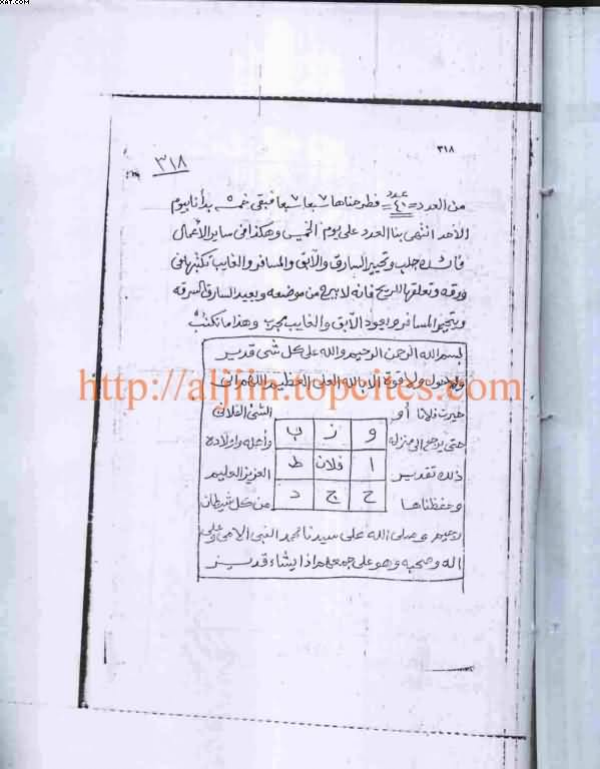 XAT.COM
٣١٨
٣١٨
عدد
من العدد = ٤١ = فطرحناها سبعا سبعا فبقى خمسه بدأنا بيوم
الاحد انتهى بنا العدد على يوم الخميس وهكذا فى ساير الاعمال
فائده جلب وتحيير السارق والآبق والمسافر والغايب تكتبها فى
ورقه وتعلقها للريح فانه لا يبرح من موضعه ويعيد السارق السرقه
ويتحير المسافر ويعود الآبق والغايب مجرب وهذا ما تكتب
بسم الله الرحمن الرحيم والله على كل شى قدير
ولا حول ولا قوة الا بالله العلى العظيم اللهم انى
http://aljiin.topcities.com
حيرت فلانا أو الشئ الفلان
و ز ب
حتى يرجع الى منزله واهله واولاده
ا فلان ط
ذلك تقدير العزيز العليم
ح ج د
وحفظناها من كل شيطان
رجيم وصلى الله على سيدنا محمد النبى الامى وعلى
اله وصحبه وهو على جمعهم اذا يشاء قدير